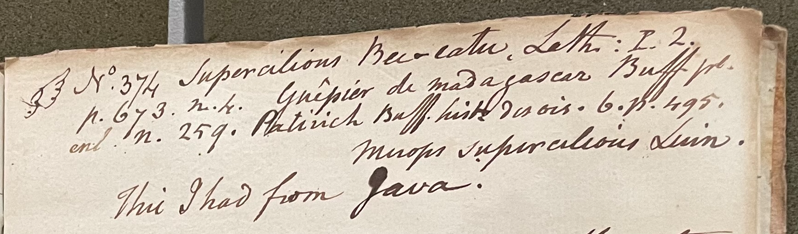 No. 374 Supercilious Bee-eater, Lath: I. 2.
p. 673. n. 4. Guêpier de madagascar Buff. pl.
enl. n. 259. Patirich Buff. hist des ois. 6. p. 495.
Merops superciliosus Linn.
This I had from Java.